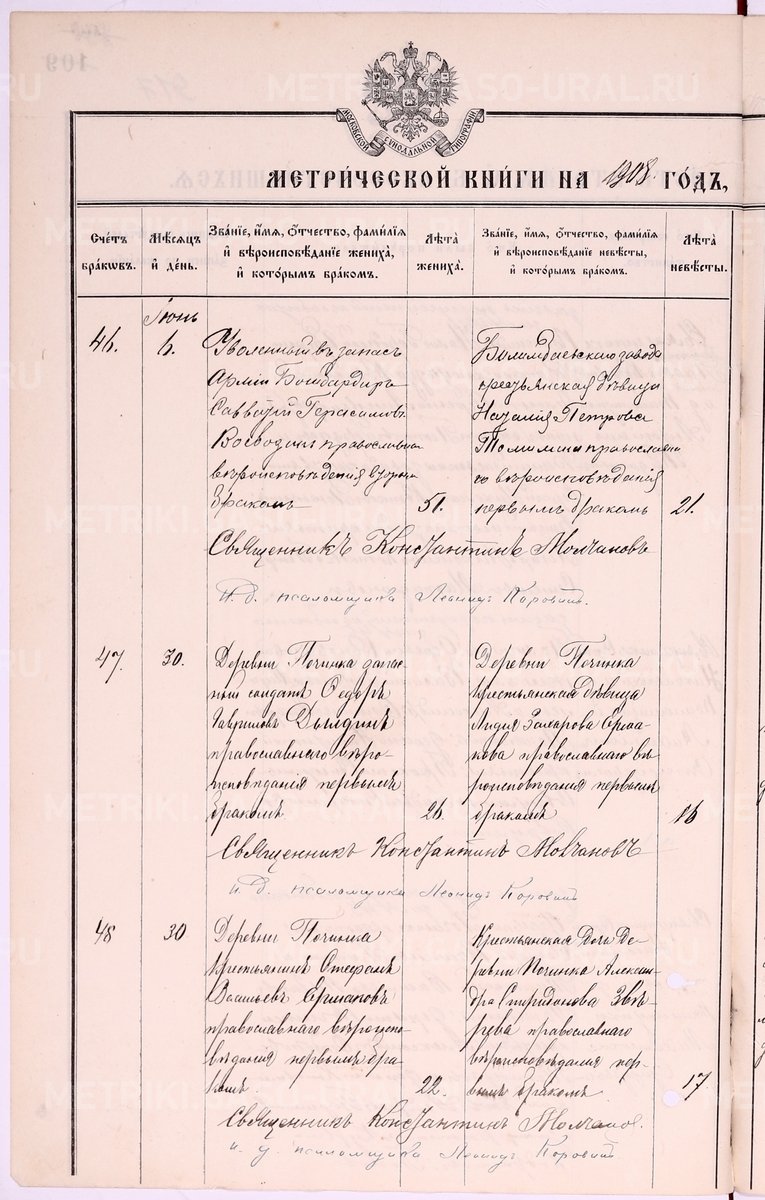 МОСКОВСКОЙ СУНОДАЛЬНОЙ ТИПОГРАФІИ
МЕТРИ́ЧЕСКОЙ КНИ́ГИ НА 1908 ГО́ДЪ,
Сче́тъ бра́кѡвъ.
Мѣ́сѧцъ и҆ де́нь.
Зва́нїе, и҆́мѧ, ѻ҆́тчество, фами́лїѧ и҆ вѣроисповѣ́данїе жениха̀, и҆ кото́рымъ бра́комъ.
Лѣта̀ жениха̀.
Зва́нїе, и҆́мѧ, ѻ҆́тчество, фами́лїѧ и҆ вѣроисповѣ́данїе невѣ́сты, и҆ кото́рымъ бра́комъ.
Лѣта̀ невѣ́сты.
Іюнь
46.
6.
Уволенный въ запасъ
Арміи Бомбардиръ
Савватій Герасимовъ
Воеводинъ православна
вѣроисповѣденія вторы
бракомъ
51.
Билимбаевскаго завода
крестьянская дѣвица
Наталія Петрова
православна
го вѣроисповѣданія
первымъ бракомъ
21.
Священникъ Константинъ Молчановъ
И. д. псаломщика Леонидъ Коровинъ.
47.
30.
Деревни Починка запас
ный солдатъ Ѳедоръ
Гавриловъ Дылдинъ
православнаго вѣро-
исповѣданія первымъ
бракомъ
26.
Деревни Починка
крестьянская дѣвица
Лидія Захарова Ерма-
кова православнаго вѣ
роисповѣданія первымъ
бракомъ
16
Священникъ Константинъ Молчановъ
и. д. псаломщика Леонидъ Коровинъ
48
30
Деревни Починка
крестьянинъ Стефанъ
Васильевъ Ермаковъ
православнаго вѣроиспо-
вѣданія первымъ бра-
комъ.
22.
Крестьянская дочь Де-
ревни Починка Алексан-
дра Спиридонова Звѣ-
рева православнаго
вѣроисповѣданія пер-
вымъ бракомъ
17
Священникъ Константинъ Молчанов.
и. д. псаломщика Леонидъ Коровинъ